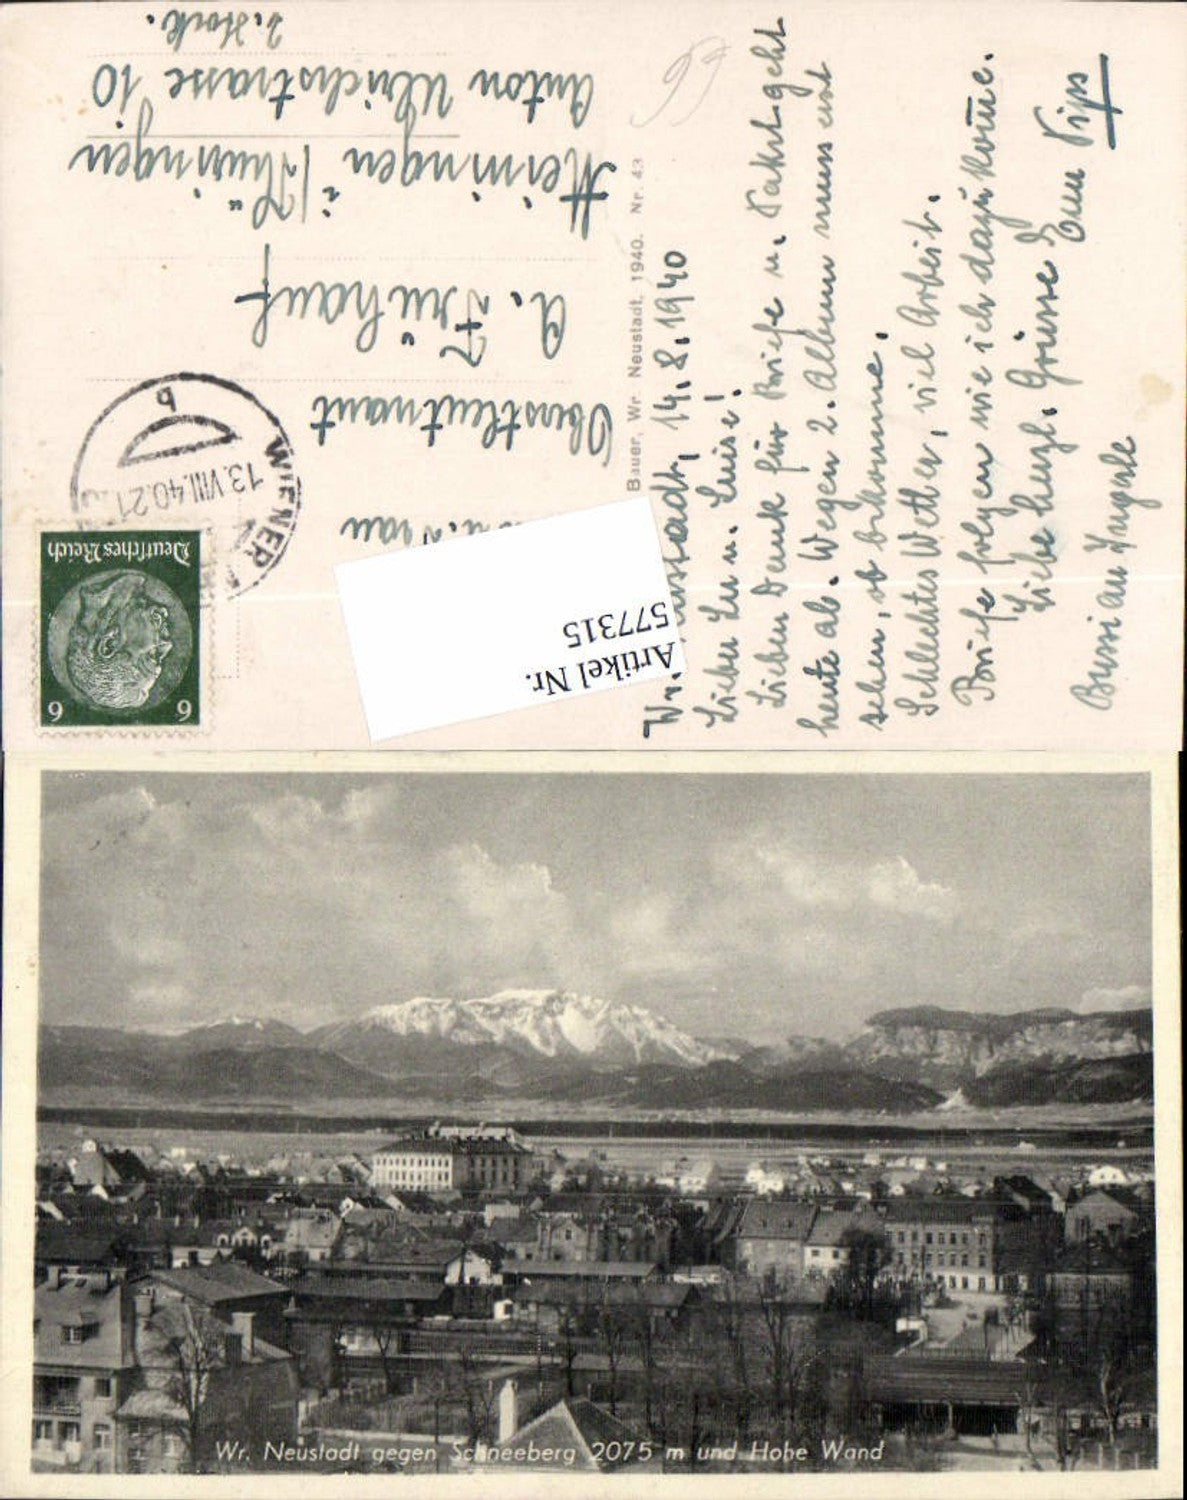 Wr. Neustadt, 14.8.1940
Lieber Lu u. Luise!
Lieben Dank für Briefe u. Paket geht
heute ab. Wegen 2. Album muss erst
sehen, ob bekomme.
Schlechtes Wetter, viel Arbeit.
Briefe folgen wie ich dazu komme.
Liebe herzl. Grüsse Euer Pips
Bussi an
Bauer, Wr. Neustadt. 1940. Nr. 43
Frau
Oberstleutnant
A. Frühauf
Meiningen i/Thüringen
Anton Ulrichstrasse 10
2. Stock.
Deutsches Reich
6 6
WIENER
13.VIII.40.21
b
Artikel Nr.
577315
Wr. Neustadt gegen Schneeberg 2075 m und Hohe Wand